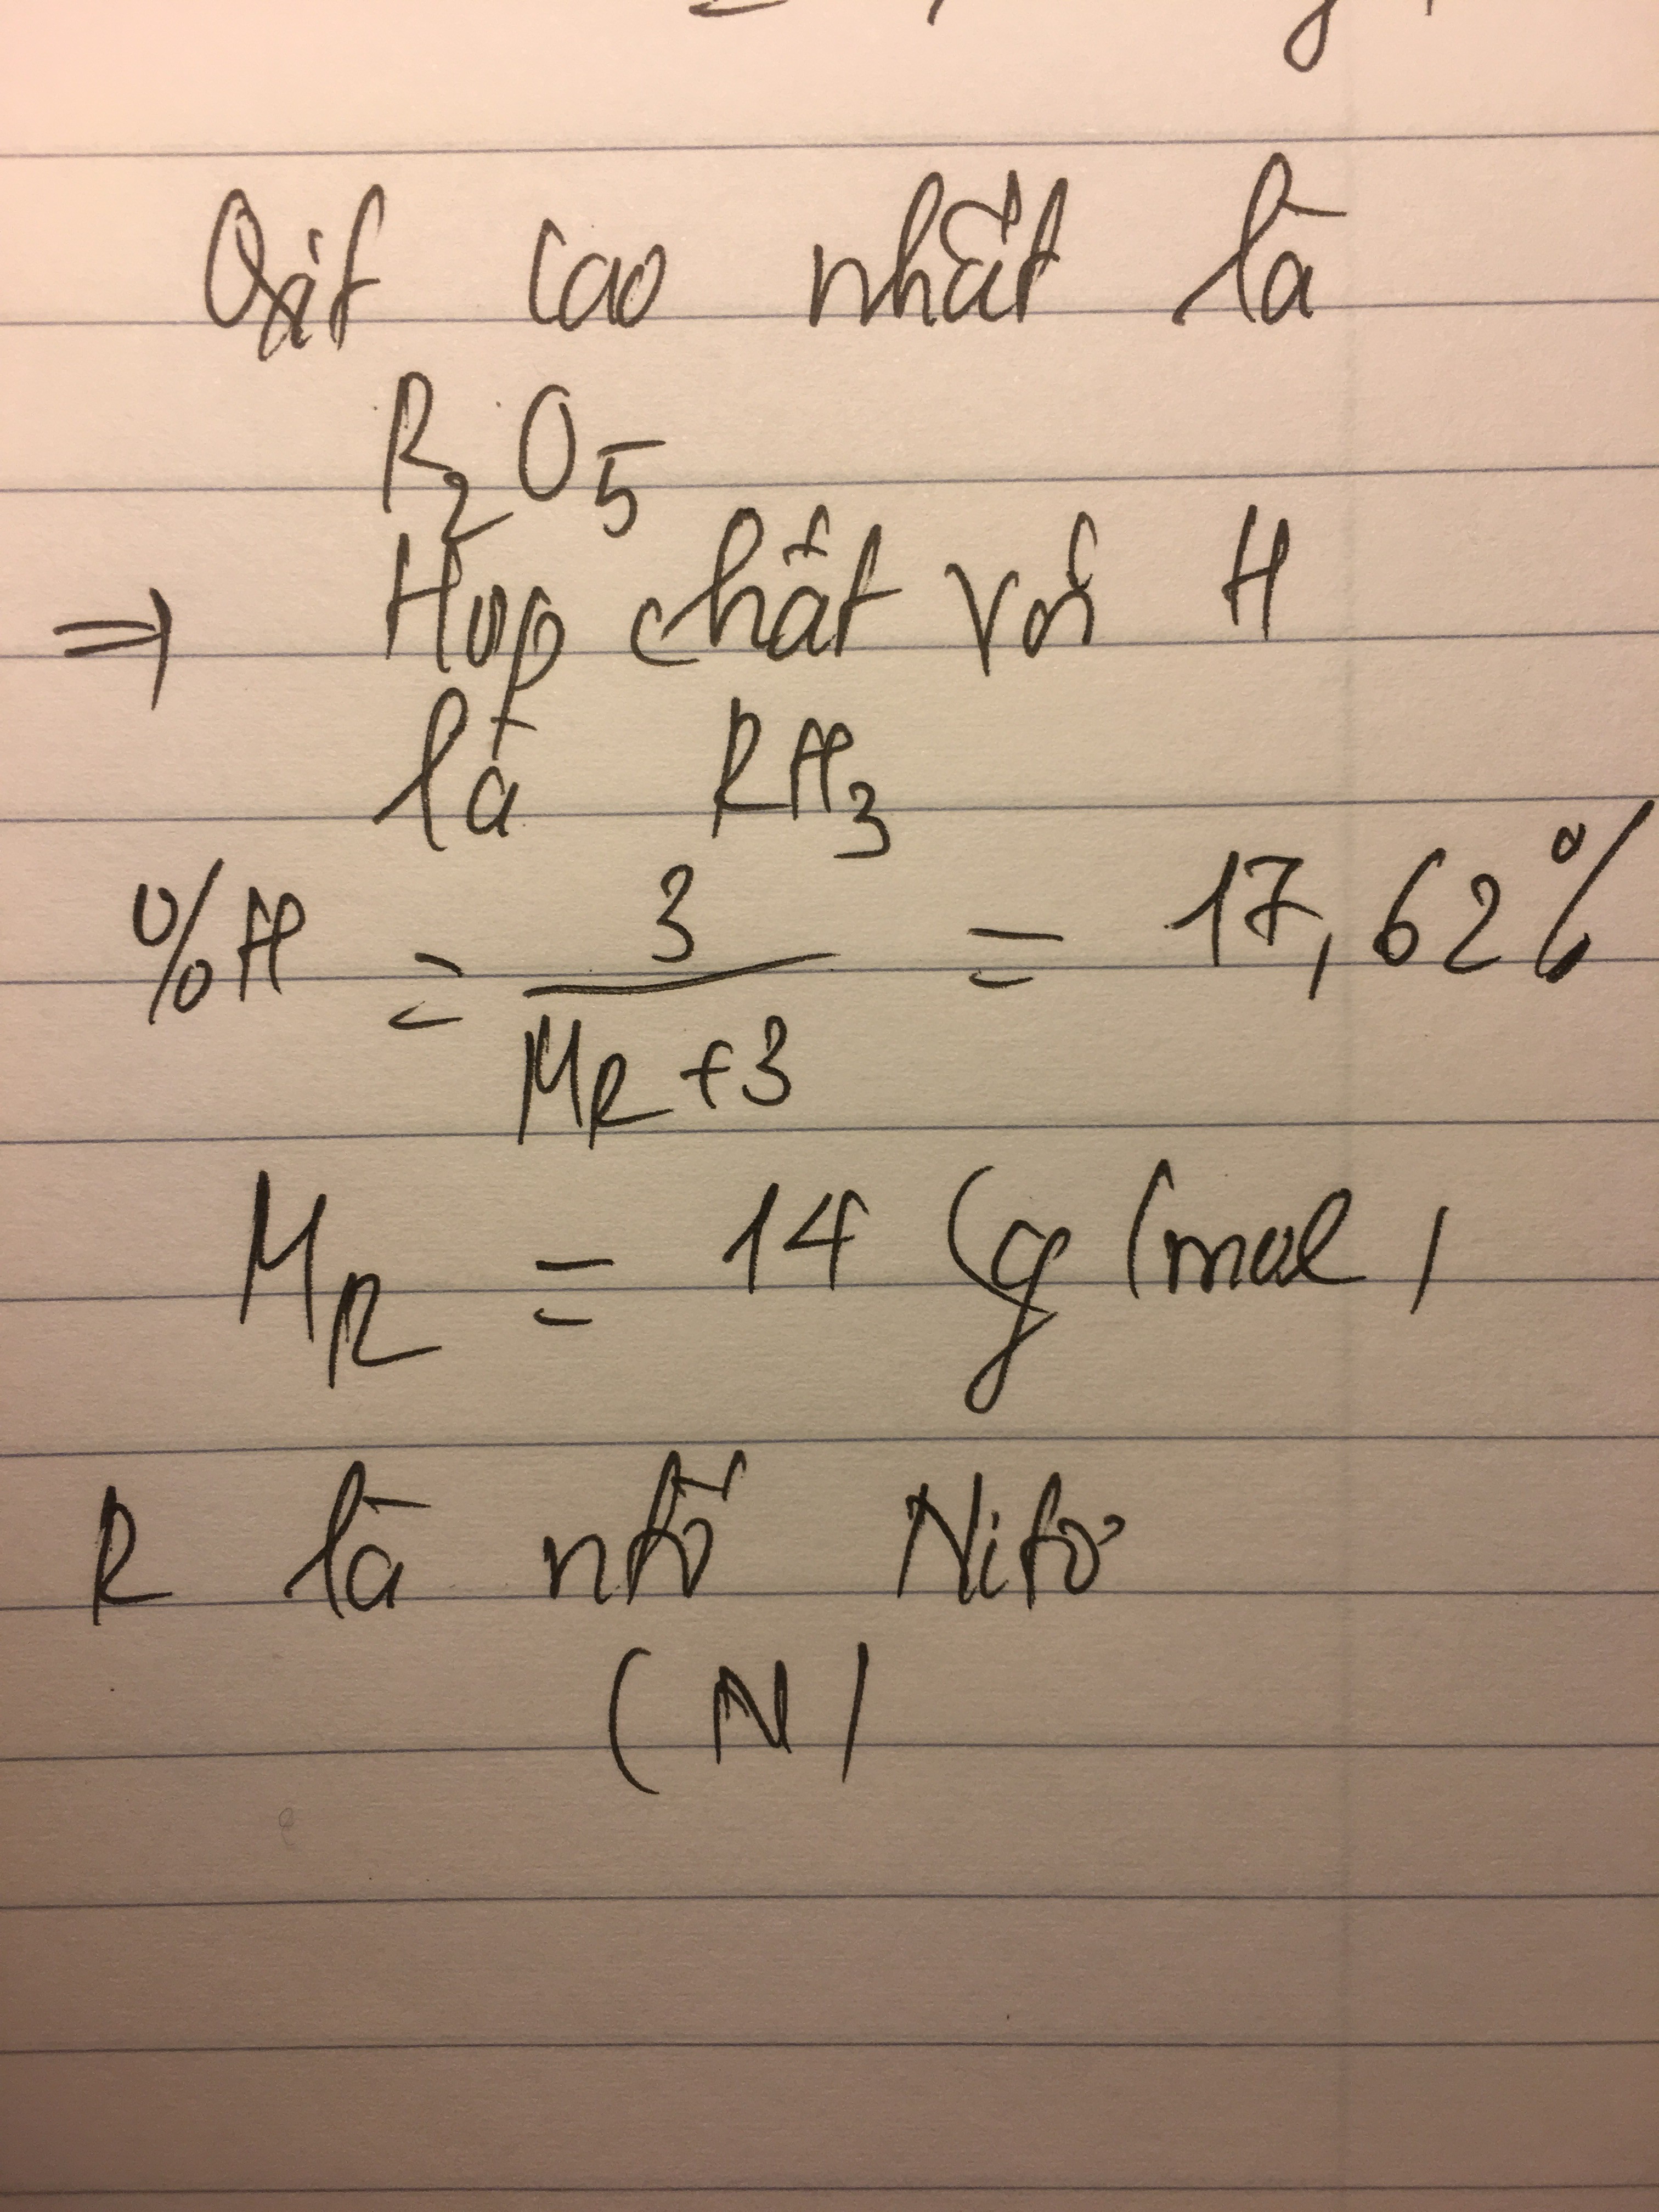 Oxit cao nhất là
R₂O₅
⇒ Hợp chất với H
là RH₃
%H = 3 / (M_R + 3) = 17,62%
M_R = 14 (g/mol)
R là ntố Nitơ
(N)